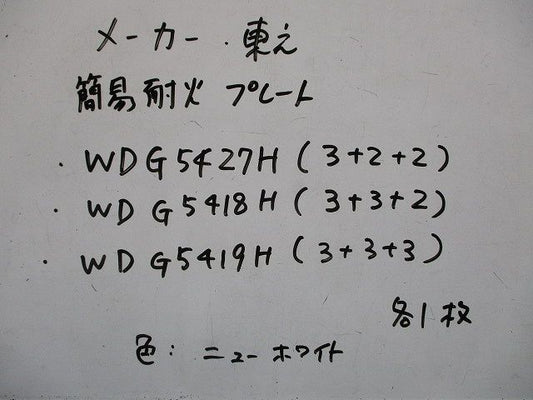 メーカー・東芝
簡易耐火 プレート
・WDG5427H(3+2+2)
・WDG5418H(3+3+2)
・WDG5419H(3+3+3)
各1枚
色:ニューホワイト